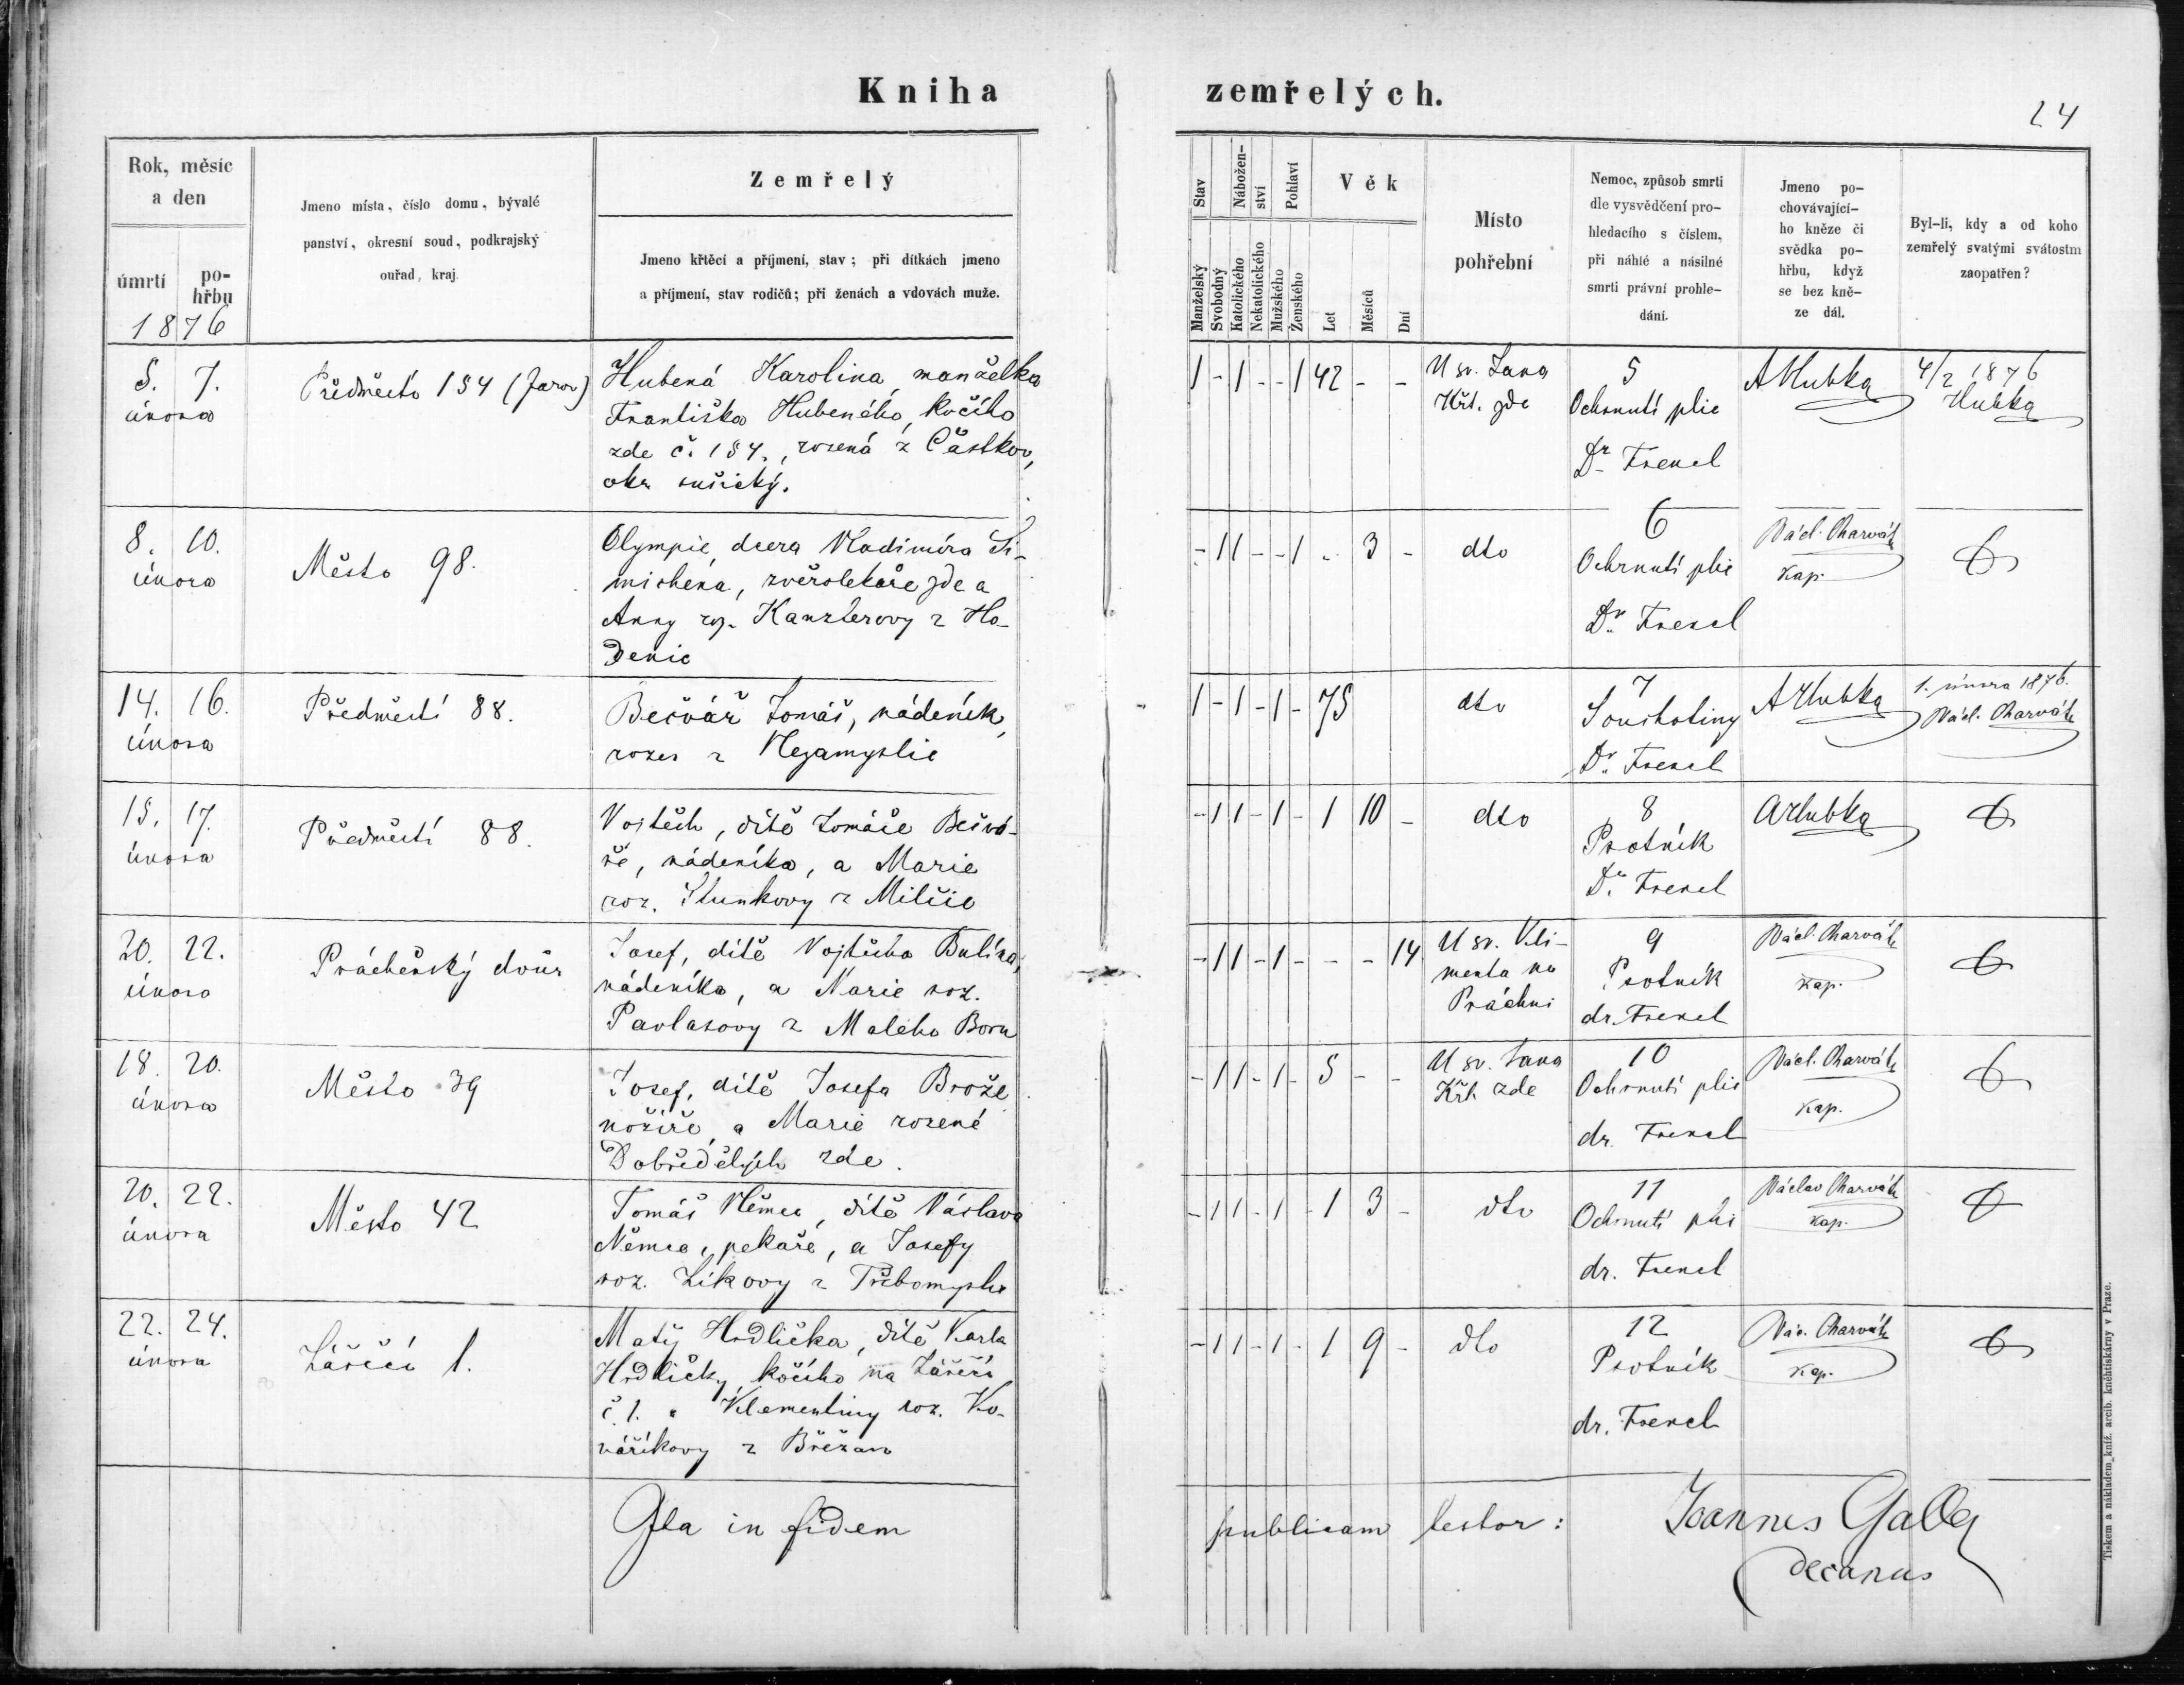 Kniha zemřelých.
24
Rok, měsíc
a den
úmrtí
po-
hřbu
1876
Jmeno místa, číslo domu, bývalé
panství, okresní soud, podkrajský
ouřad, kraj.
Zemřelý
Jmeno křtěcí a příjmení, stav; při dítkách jmeno
a příjmení, stav rodičů; při ženách a vdovách muže.
Stav
Nábožen-
ství
Pohlaví
Věk
Manželský
Svobodný
Katolického
Nekatolického
Mužského
Ženského
Let
Měsíců
Dní
Místo
pohřební
Nemoc, způsob smrti
dle vysvědčení pro-
hledacího s číslem,
při náhlé a násilné
smrti právní prohle-
dání.
Jmeno po-
chovávající-
ho kněze či
svědka po-
hřbu, když
se bez kně-
ze dál.
Byl-li, kdy a od koho
zemřelý svatými svátostm
zaopatřen?
5. 7.
února
Předměstí 154
Hubená Karolina, manželka
Františka Hubeného, kočího
zde č. 154., rozená z Částkov,
okr. sušický.
1 - 1 - - 1 42 - -
U sv. Jana
Křt. zde
5
Ochrnutí plic
Dr. Frencl
AHubka
4/2 1876
Hubka
8. 10.
února
Město 98.
Olympie, dcera Vladimíra Ši-
michena, zvěrolekaře zde a
Anny roz. Kanzlerovy z Ho-
denic
- 1 1 - - 1 - 3 -
dto
6
Ochrnutí plic
Dr. Frencl
Václ. Charvát
kap.
14. 16.
února
Předměstí 88.
Bečvář Tomáš, nádeník,
rozen z Nezamyslic
1 - 1 - 1 - 75
dto
7
Souchotiny
Dr. Frencl
AHubka
1. února 1876.
Václ. Charvát
15. 17.
února
Předměstí 88.
Vojtěch, dítě Tomáše Bečvá-
ře, nádeníka, a Marie
roz. Slunkovy z Milčic
- 1 1 - 1 - 1 10 -
dto
8
Psotník
Dr. Frencl
AHubka
20. 22.
února
Práchěňský dvůr
Josef, dítě Vojtěcha Bulína,
nádeníka, a Marie roz.
Pavlasovy z Malého Boru
- 1 1 - 1 - - - 14
U sv. Kli-
menta na
Práchni
9
Psotník
dr. Frencl
Václ. Charvát
kap.
18. 20.
února
Město 39
Josef, dítě Josefa Brože
nožíře, a Marie rozené
Dobředělých zde.
- 1 1 - 1 - 5 - -
U sv. Jana
Křt. zde
10
Ochrnutí plic
dr. Frencl
Václ. Charvát
kap.
20. 22.
února
Město 42
Tomáš Němec, dítě Václava
Němce, pekaře, a Josefy
roz. Zíkovy z Třebomyslic
- 1 1 - 1 - 1 3 -
dto
11
Ochrnutí plic
dr. Frencl
Václav Charvát
kap.
22. 24.
února
Zářečí 1.
Matěj Hrdlička, dítě Karla
Hrdličky kočího na Zářečí
č. 1. a Klementiny roz. Ko-
váříkovy z Břežan
- 1 1 - 1 - 1 9 -
dto
12
Psotník
dr. Frencl
Vác. Charvát
kap.
Ita in fidem publicam testor:
Joannes Galla
decanus
Tiskem a nákladem kníž. arcib. kněhtiskárny v Praze.